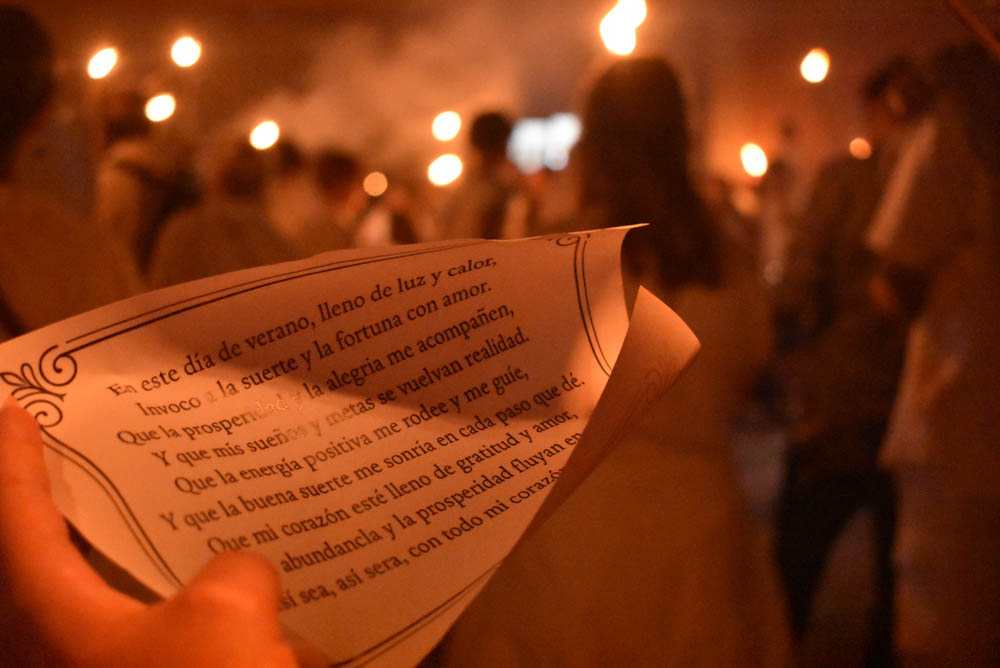 En este día de verano, lleno de luz y calor,
Invoco a la suerte y la fortuna con amor.
Que la prosperidad y la alegria me acompañen,
Y que mis sueños y metas se vuelvan realidad.
Que la energía positiva me rodee y me guíe,
Y que la buena suerte me sonría en cada paso que dé.
Que mi corazón esté lleno de gratitud y amor,
abundancia y la prosperidad fluyan en
así sea, asi sera, con todo mi corazón